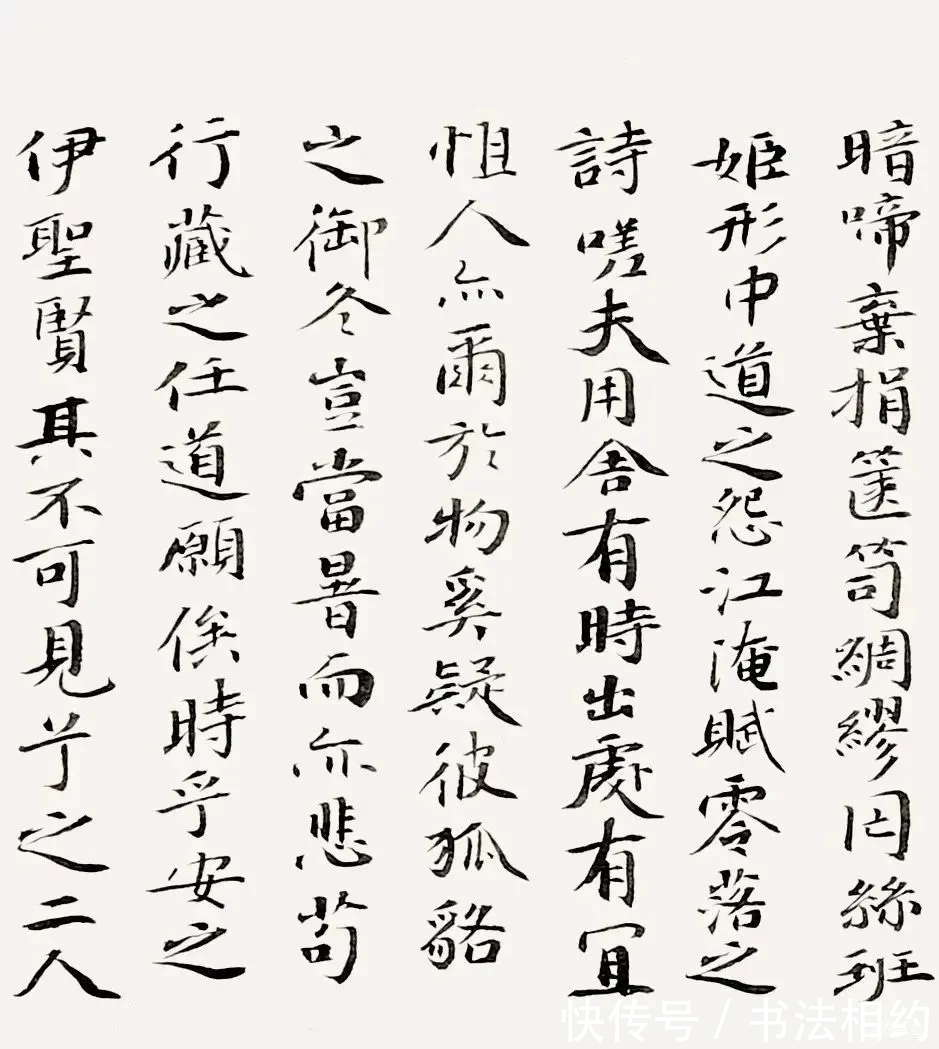 暗啼棄捐篋笥綢繆罔絲班
姬形中道之怨江淹賦零落之
詩嗟夫用舍有時出處有宜
怚人亦爾於物奚疑彼狐貉
之御冬豈當暑而亦悲苟
行藏之任道願俟時乎安之
伊聖賢其不可見兮之二人
快传号 / 书法相约